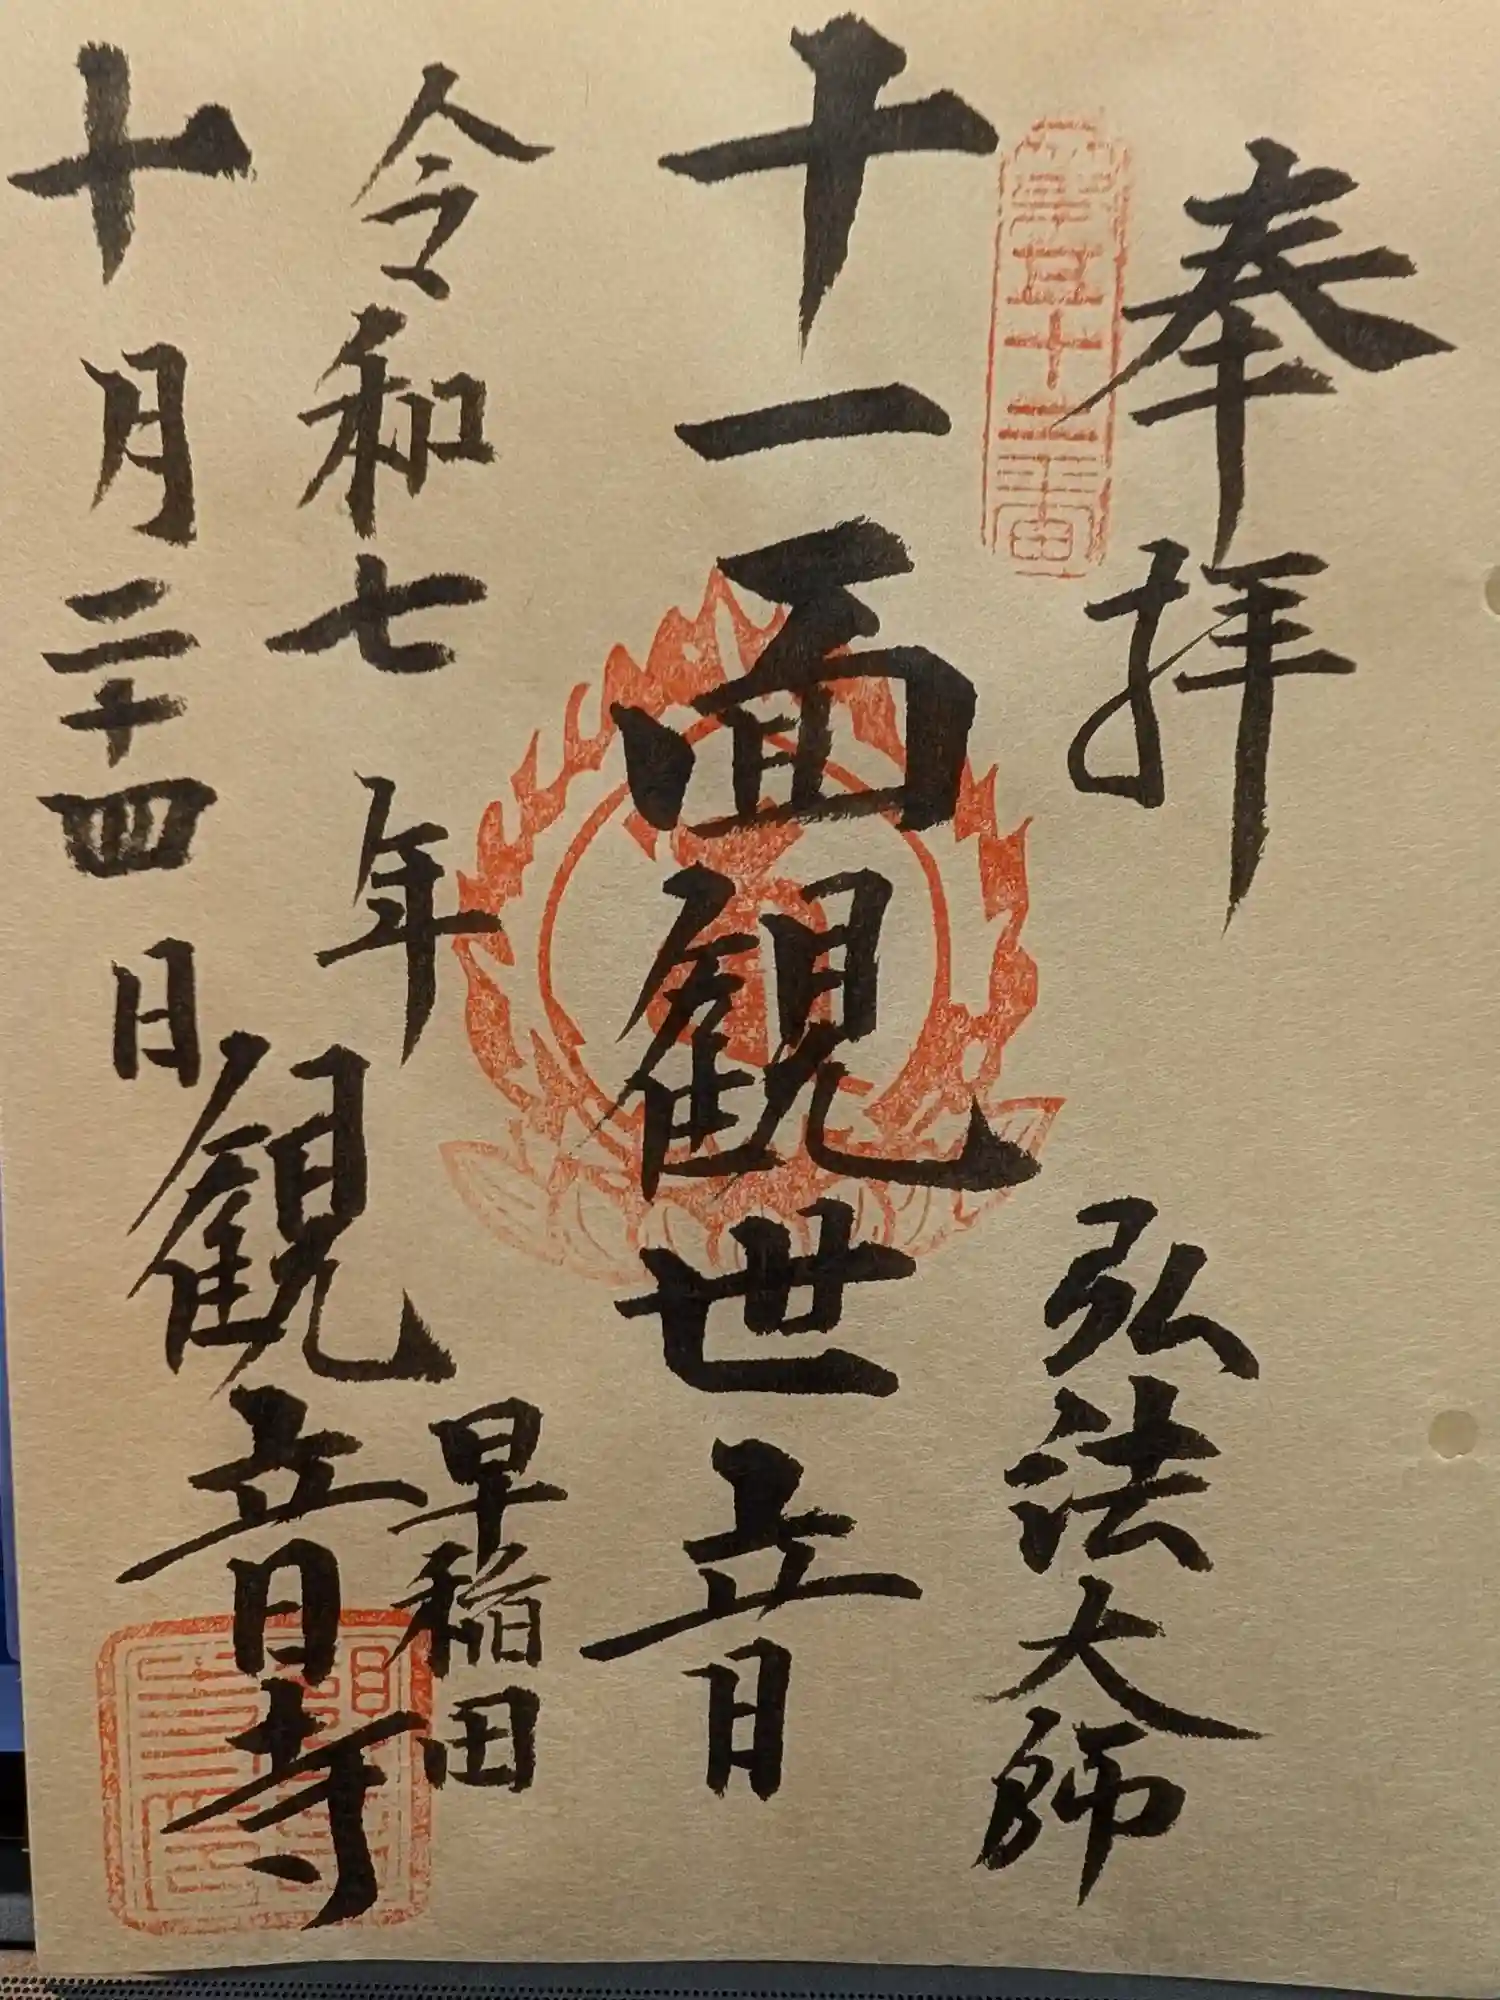 奉拝
弘法大師
十一面観世音
令和七年
十月二十四日
早稲田
観音寺